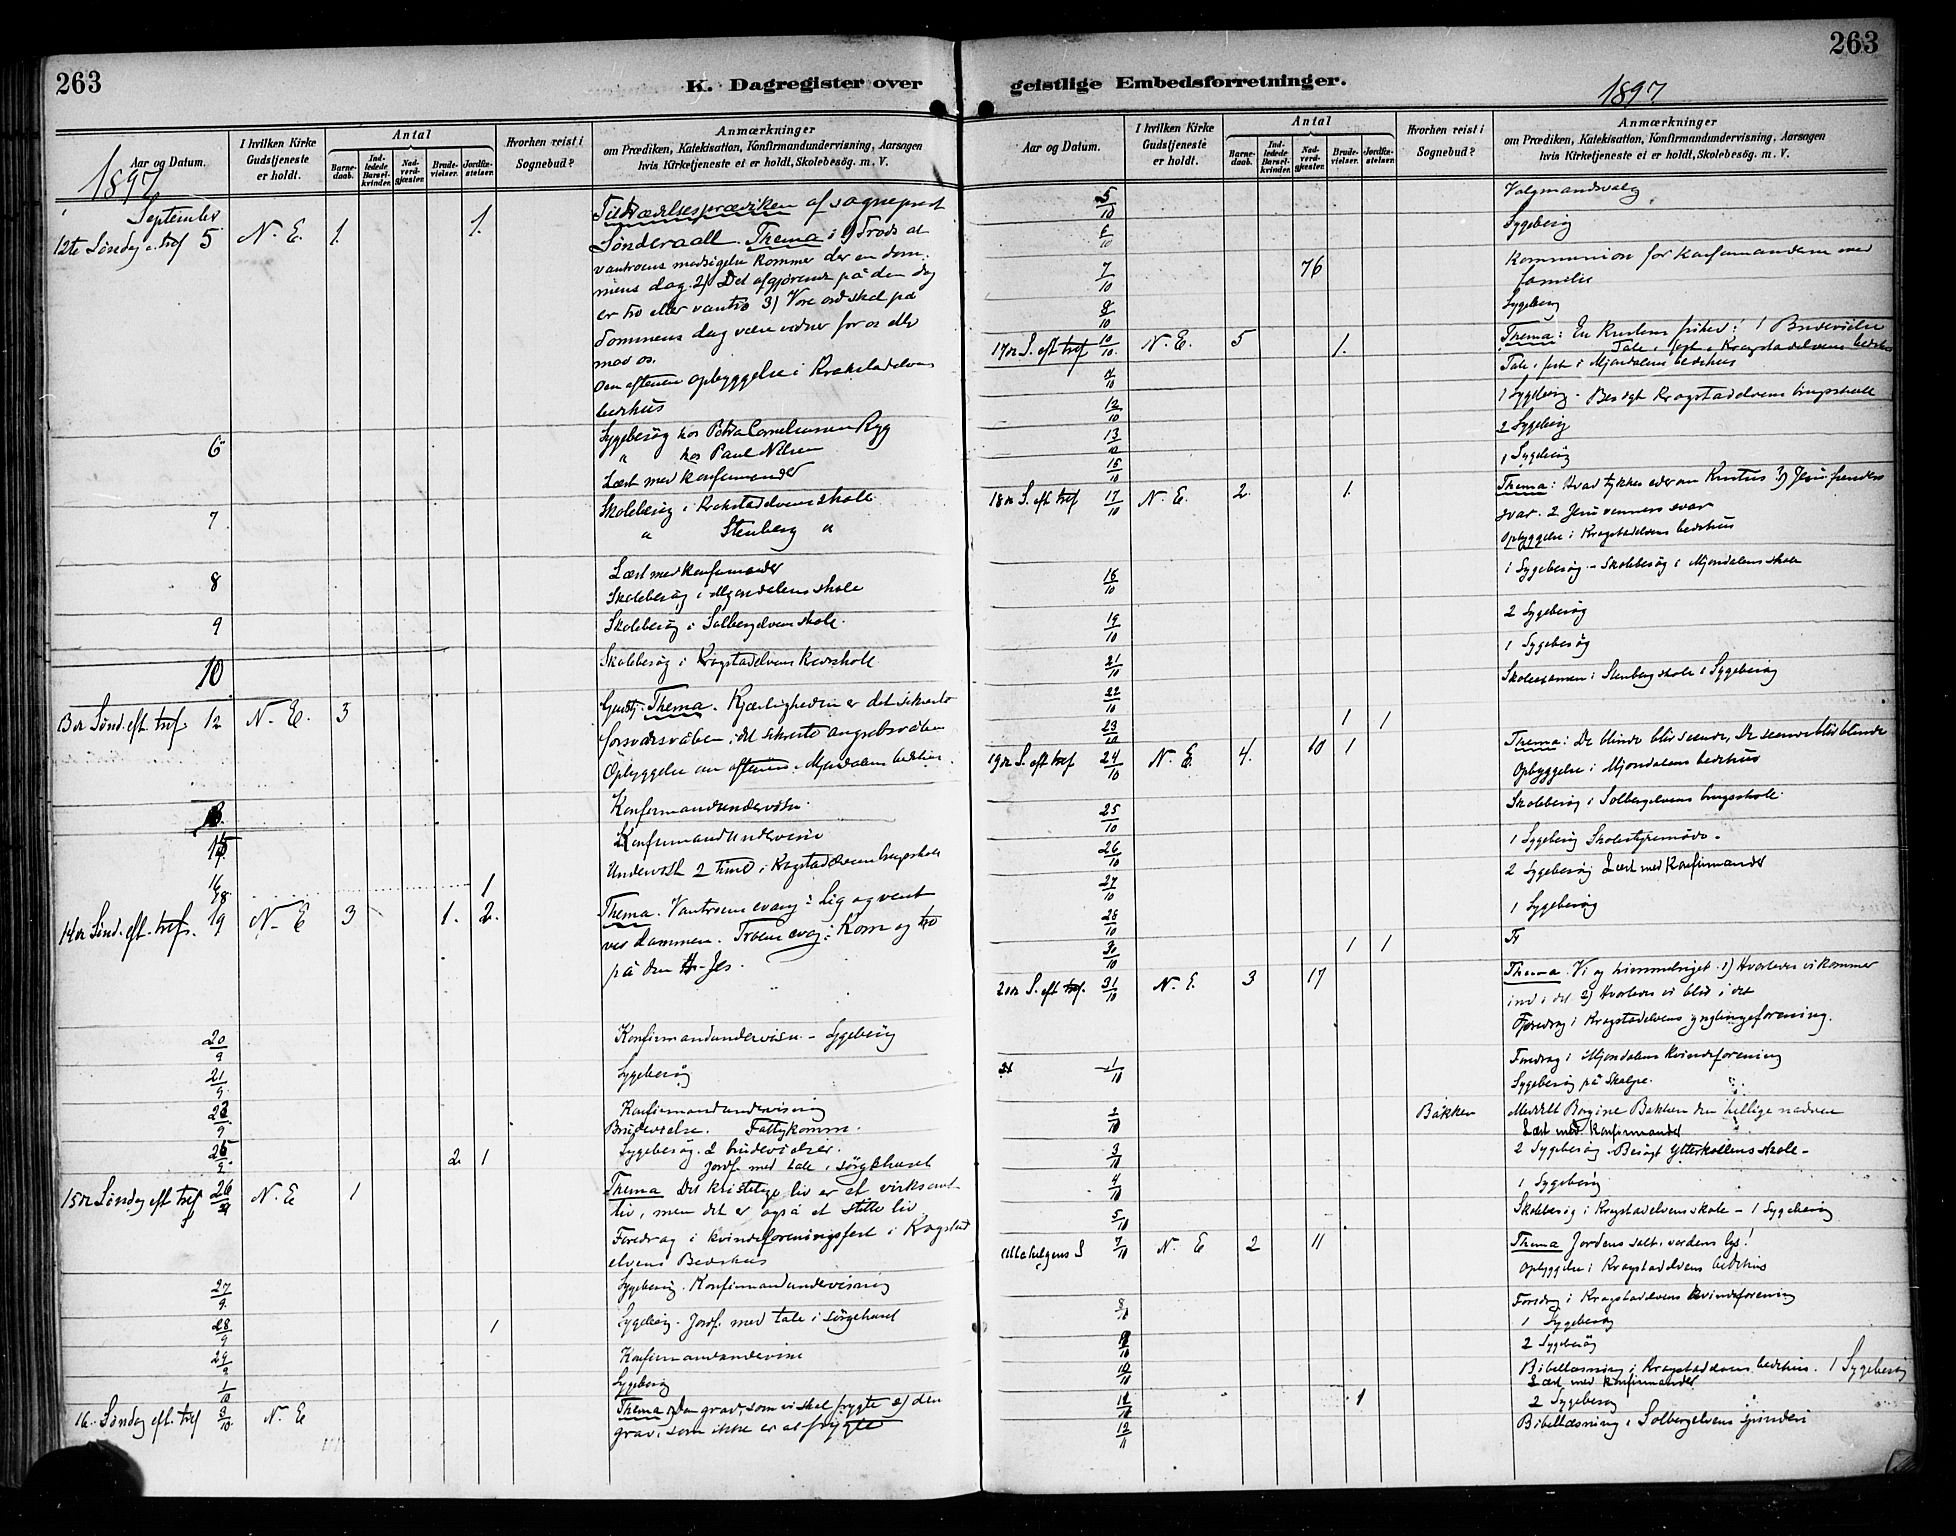 263
K. Dagregister over
Aar og Datum.
I hvilken Kirke Gudstjeneste er holdt.
Antal
Barnedaab.
Indledede Barselkvinder.
Nadverdgjæster.
Brudevielser.
Jordfæstelser.
Hvorhen reist i Sognebud?
Anmærkninger
om Prædiken, Katekisation, Konfirmandundervisning, Aarsagen
hvis Kirketjeneste ei er holdt, Skolebesög. m. V.
1897
September
12te Søndag e. tref 5 N. E. 1. 1. Tiltrædelsesprædiken af sogneprest
Sønderaall. Thema: 1) Trods al
vantroens modsigelse kommer der en dom-
mens dag. 2) Det afgjørende på den dag
er tro eller vantro 3) Vore ord skal på
dommens dag være vidner for os eller
mod os.
Om aftenen opbyggelse i Krokstadelvens
bedehus
6 Sygebesøg hos Petra Corneliussen Ryg
" hos Paul Nilsen
Læst med konfirmander
7 Skolebesøg i Krokstadelvens skole
" Stenberg "
Læst med konfirmander
8 Skolebesøg i Mjøndalens skole
9 Skolebesøg i Solbergelvens skole.
10 Skolebesøg i Krogstadelvens skole
13de Sønd. eft. tref. 12 N. E. 3 Thema. Kjærligheden er det sikreste
forsvarsvåben, det sikreste angrebsvåben
Opbyggelse om aftenen i Mjøndalens bedehus.
Konfirmandunderviisn.
15 Konfirmandundervisn
16 Undervist 2 timer i Krogstadelvens brugsskole
18. 1
14de Sønd. eft. tref. 19 N. E 3 1. 2. Thema. Vantroens evang: Lig og vent
ved dammen. Troens evag: Kom og tro
på den H. Jes.
20/9 Konfirmandundervisn. - Sygebesøg
21/9 Sygebesøg
23/9 Konfirmandundervisning
Brudevielse. Fattigkomm.
25/9 2 1 Sygebesøg. 2 brudevielser.
Jordf. med tale i sørgehuset
15de Søndag eft tref 26/9 N. E 1 Thema Det kristelige liv er et virksomt
liv, men det er også et stille liv
Foredrag i kvindeforeningsfest i Krogstad
elvens Bedehus
27/9 Sygebesøg. Konfirmandundervisning
28/9 1 Sygebesøg. Jordf. med tale i sørgehuset
29/9 Konfirmandundervisn
1/10 Sygebesøg
16. Søndag eft. tref 3/10 N. E Thema 1) Den grav, som vi skal frygte 2) den
grav, som ikke er at frygte
263
geistlige Embedsforretninger.
1897
Aar og Datum.
I hvilken Kirke Gudstjeneste er holdt.
Antal
Barnedaab.
Indledede Barselkvinder.
Nadverdgjæster.
Brudevielser.
Jordfæstelser.
Hvorhen reist i Sognebud?
Anmærkninger
om Prædiken, Katekisation, Konfirmandundervisning, Aarsagen
hvis Kirketjeneste ei er holdt, Skolebesög. m. V.
5/10 Valgmandsvalg
6/10 Sygebesøg
7/10 76 Kommunion for konfirmanderne med
familie
8/10 Sygebesøg
17de S. eft tref 10/10 N. E. 5 1. Thema: En kristens frihed! 1 Brudevielse
Tale i fest i Krogstadelvens bedehus
Tale i fest i Mjøndalens bedehus
1 Sygebesøg. Besøgt Krogstadelvens brugsskole
12/10 2 Sygebesøg
13/10 1 Sygebesøg
15/10
18de S. eft tref 17/10 N. E. 2 1. Thema: Hvad tykkes eder om Kristus 1) Jesu fienders
svar. 2 Jesu venners svar
Opbyggelse i Krogstadelvens bedehus
1 Sygebesøg - Skolebesøg i Mjøndalens skole
18/10 2 Sygebesøg
19/10 1 Sygebesøg
21/10 Skoleexamen i Stenberg skole 1 Sygebesøg
22/10
23/10 1 1
19de S. eft tref 24/10 N. E. 4. 10 1 Thema: De blinde blev seende, De seende blev blinde
Opbyggelse i Mjøndalens bedehus
25/10 Skolebesøg i Solbergelvens brugsskole
26/10 1 Sygebesøg Skolestyremøde.
27/10 2 Sygebesøg Læst med Konfirmander
28/10 1 Sygebesøg
30/10 1 1
20de S. eft tref. 31/10 N. E. 3 17 Thema. Vi og himmelriget. 1) Hvorledes vi kommer
ind i det 2) Hvorledes vi blir i det
Foredrag i Krogstadelvens ynglingeforening.
1/10 Foredrag i Mjøndalens kvindeforening
Sygebesøg på Skalpe.
2/10 Bakken Meddelt Borgine Bakken den hellige nadver
Læst med konfirmander
3/10 2 Sygebesøg. Besøgt Ytterkollens skole -
4/10 1 Sygebesøg
5/10 Skolebesøg i Krogstadelvens skole - 1 Sygebesøg
Allehelgens S 7/10 N. E 2 11 Thema Jordens salt, verdens lys!
Opbyggelse i Krogstadelvens bedehus
8/10 Foredrag i Krogstadelvens kvindeforening
1 Sygebesøg
2 Sygebesøg
10/10 Bibellæsning i Krogstadelvens bedehus. 1 Sygebesøg
Læst med konfirmander
1 2 Sygebesøg
12/11 Bibellæsning i Solbergelvens spinderi